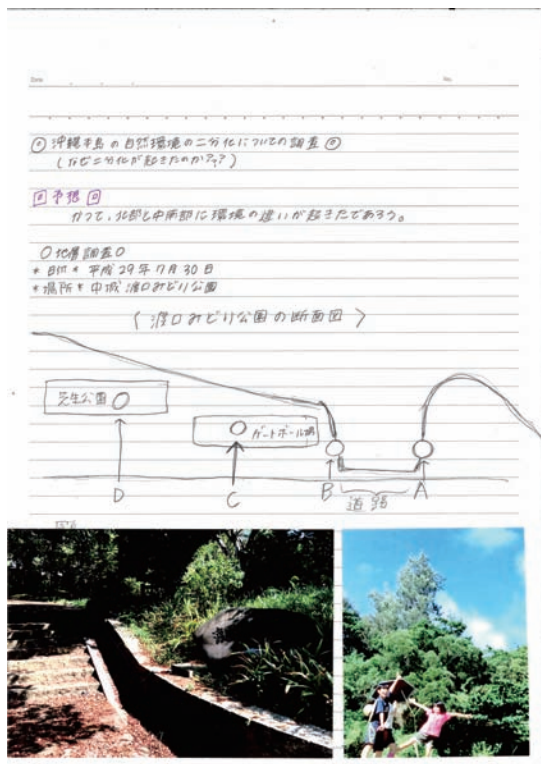 Date
No.
◎ 沖縄本島の自然環境の二分化についての調査 ◎
(なぜ二分化が起きたのか???)
回 予想 回
かつて、北部と中南部に環境の違いが起きたであろう。
○地層調査○
* 日付 * 平成29年7月30日
* 場所 * 中城 渡口みどり公園
〈 渡口みどり公園の断面図 〉
芝生公園
ゲートボール場
D
C
B
A
道路